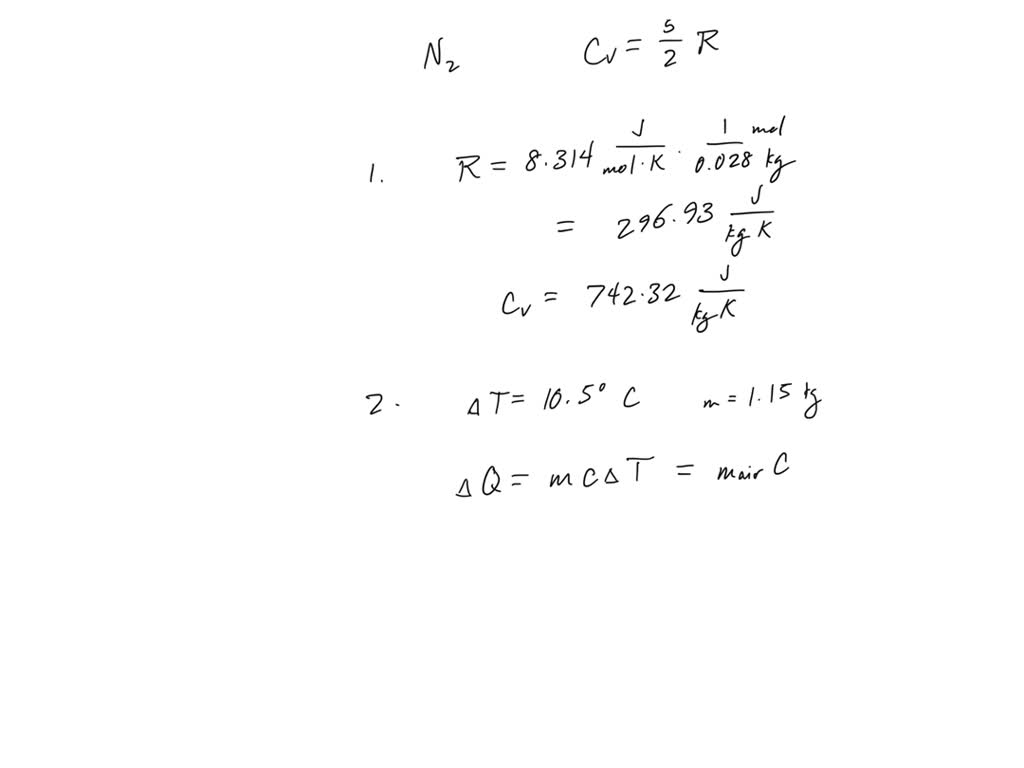 N₂ Cv = 5/2 R
1. R = 8.314 J/mol·K · 1 mol/0.028 kg
= 296.93 J/kg K
Cv = 742.32 J/kg K
2. ΔT = 10.5° C m = 1.15 kg
ΔQ = m c Δ T = mair C